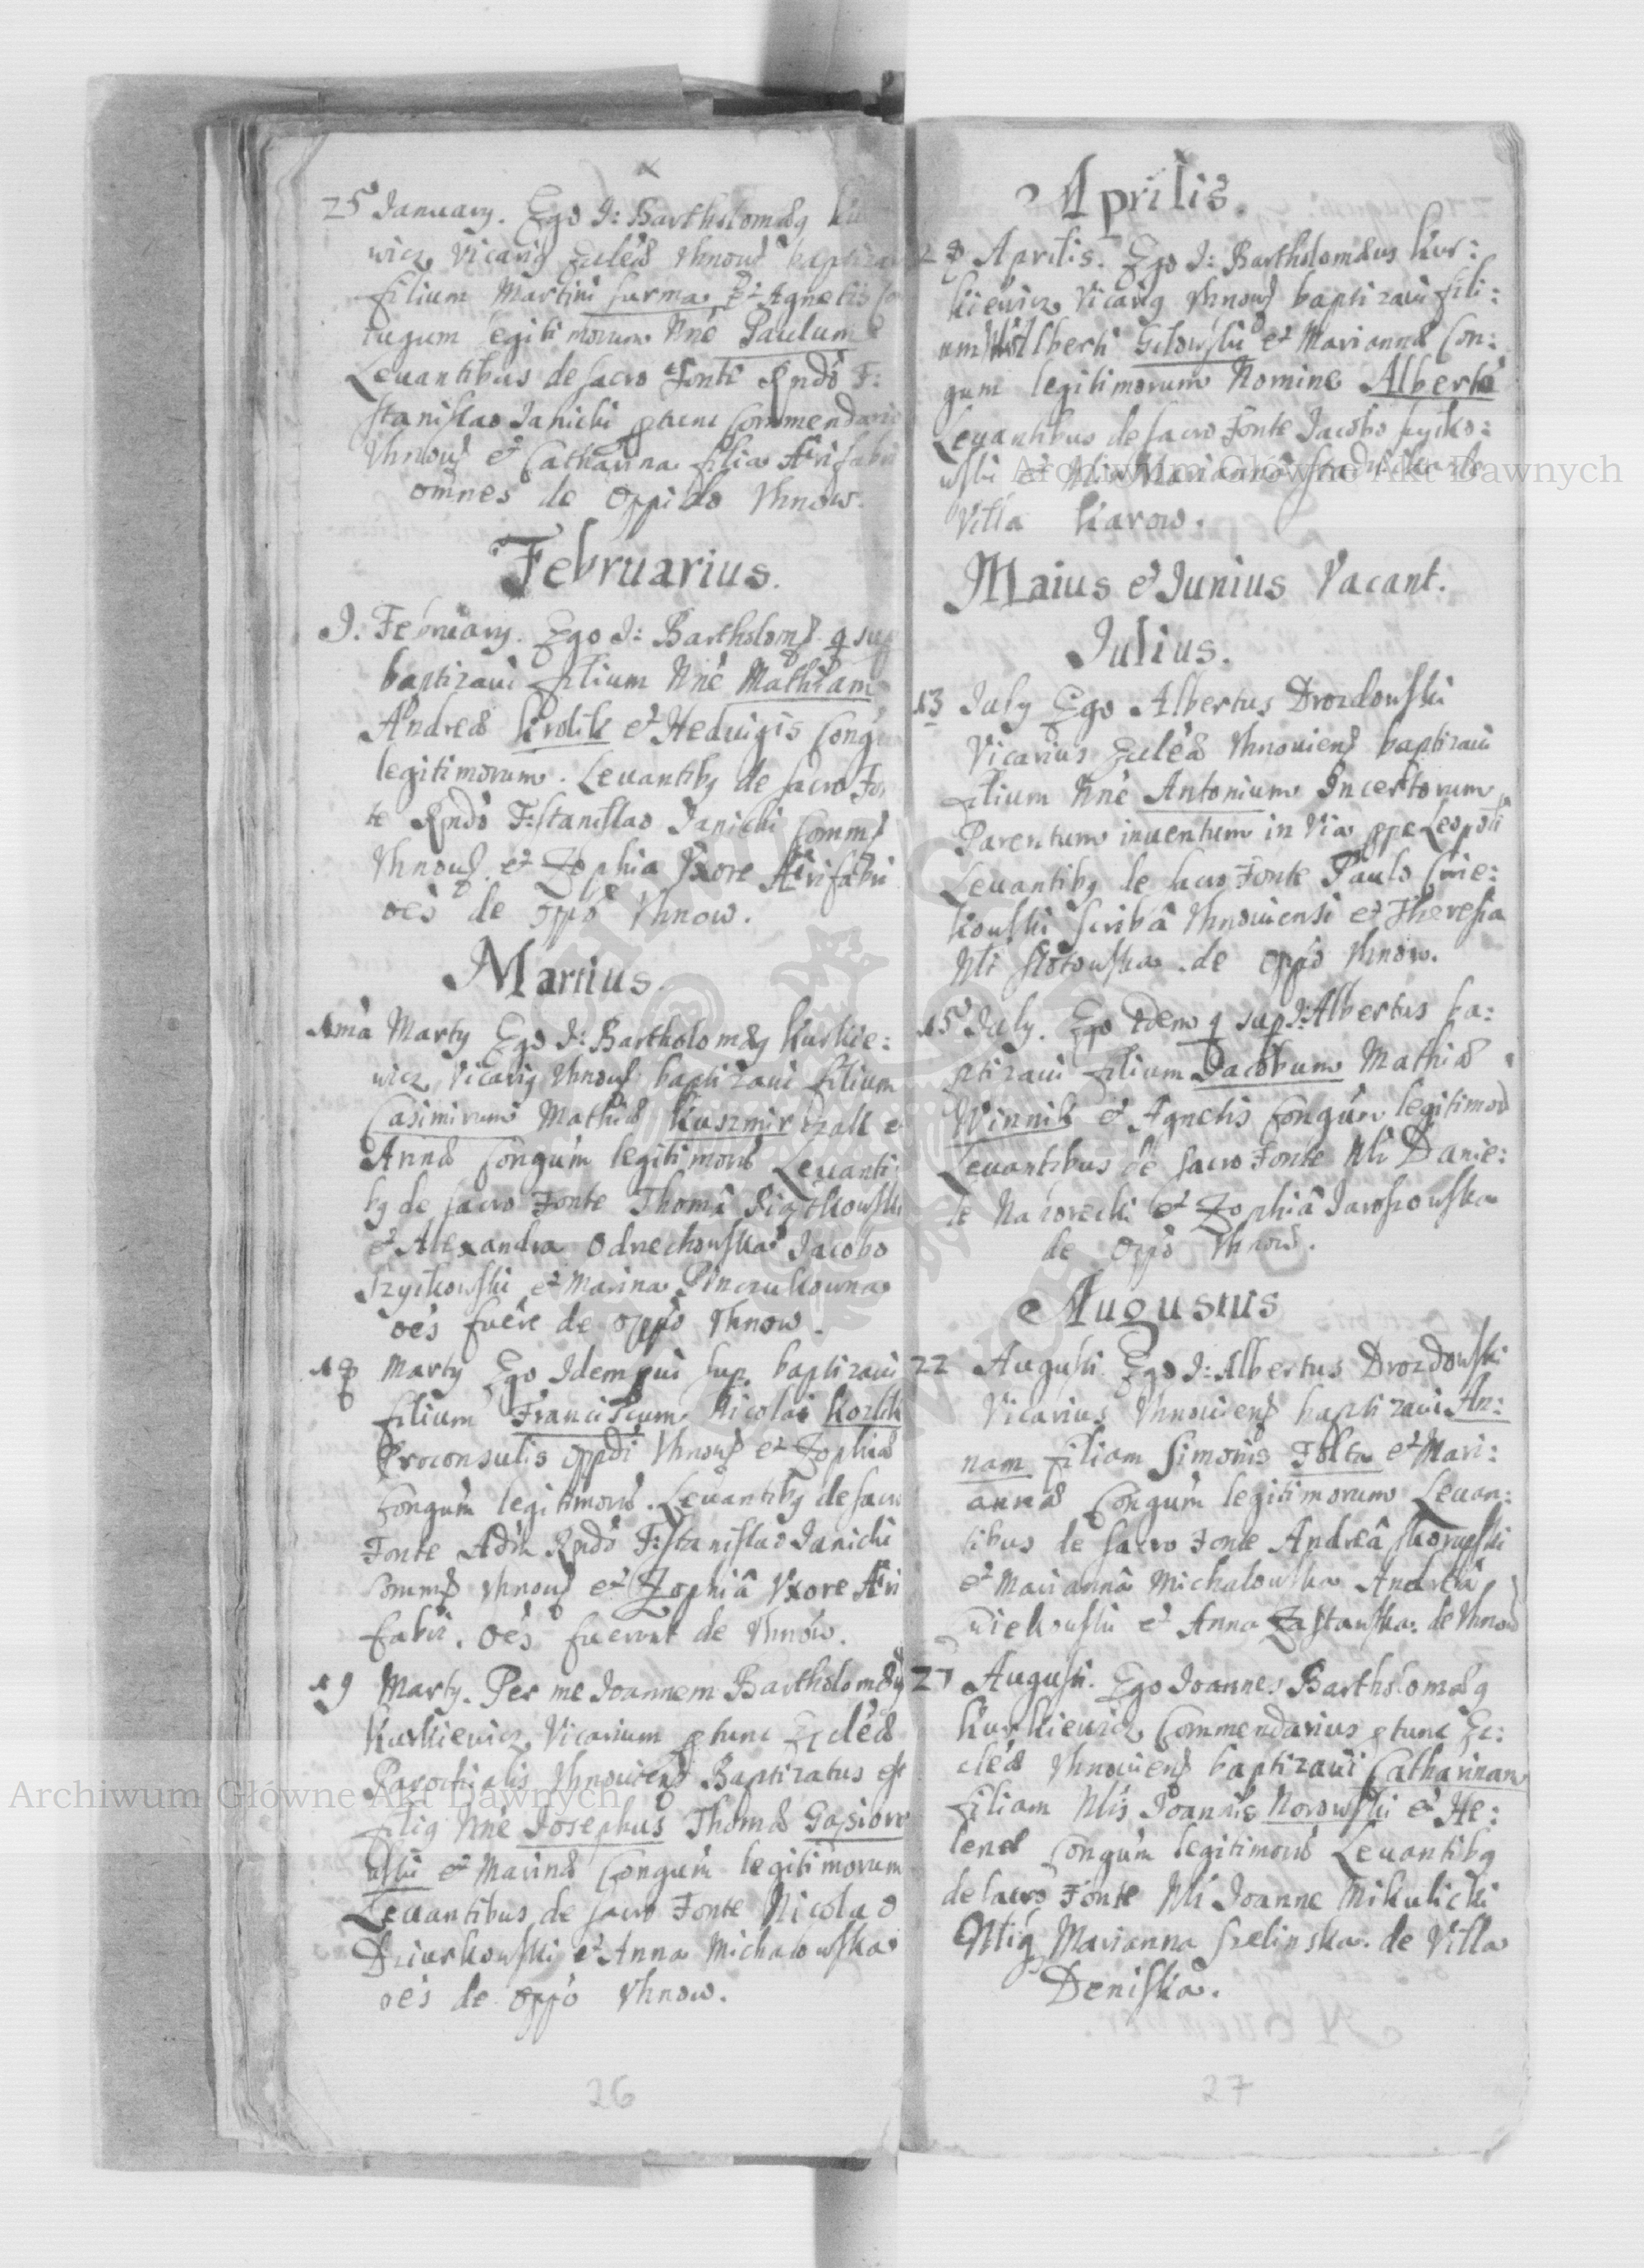 25 January. Ego J: Bartholomæg
wicz Vicarig Eccleæ Vhnous baptiza
filium Martini furma et Agnetis
iugum legitimorum Nne Paulum
Levantibus de sacro Fonte Rndo F:
Stanislao Janicki ptunc Commendario
Vhnous et Catharina filia Arifabri
omnes de Oppido Vhnow.
Februarius.
1. February. Ego J: Bartholoms q sup
baptizavi filium Nne Mathiam
Andreæ Krolik et Hedvigis Congu
legitimorum. Levantibg de sacro Fon
te Rndo F: Stanislao Janicki Comms
Vhnous et Zophia Uxore Arifabri
oes de oppo Vhnow.
Martius.
1ma Marty Ego J: Bartholomæg Kurkie:
wicz Vicarig Vhnous baptizavi filium
Casimirum Mathiæ Kuszmirczak et
Annæ Congum legitimoru Levanti
bg de sacro Fonte Thomâ
et Alexandra Odrzechowska Jacobo
Szyckowski et Marina
oes fuêre de oppo Vhnow.
18 Marty Ego Idem qui sup. baptizavi
filium Franciscum Nicolai Kozlik
Proconsulis oppdi Vhnous et Zophiæ
Congum legitimoru. Levantibg de sacro
Fonte Adm Rndo F: Stanislao Janicki
Comms Vhnous et Zophiâ Uxore Ari
fabri. Oes fuerunt de Vhnow.
19 Marty. Per me Joannem Bartholomæg
Kurkiewicz Vicarium ptunc Eccleæ
Parochialis Vhnoviens Baptizatus est
filig Nne Josephus Thomæ Gąsioro
wski et Marinæ Congum legitimorum
Levantibus de sacro Fonte Nicolao
Dziurkowski et Anna Michalowska
oes de oppo Vhnow.
26
Aprilis.
28 Aprilis. Ego J: Bartholomæus Kur:
kiewicz Vicarig Vhnous baptizavi fili:
um Alberti Gilowski et Mariannæ Con:
gum legitimorum Nomine Albertu
Levantibus de sacro Fonte Jacobo Szycko:
wski et Marianna de
Villa Karow.
Maius et Junius Vacant.
Julius.
13 July Ego Albertus Drozdowski
Vicarius Eccleæ Vhnoviens baptizavi
filium Nne Antonium Incertorum
Parentum inventum in Via ppe Leopoli
Levantibg de sacro Fonte Paulo Cwie:
kowski Scribâ Vhnoviensi et Theresia
Nli Slotowska de oppo Vhnow.
15 July. Ego Idem q sup J: Albertus ba:
ptizavi filium Jacobum Mathiæ
Winnik et Agnetis Congum legitimoru
Levantibus de sacro Fonte Nli Danie:
le Naborecki et Zophiâ Jaroszowska
de oppo Vhnow.
Augustus
22 Augusti Ego J: Albertus Drozdowski
Vicarius Vhnoviens baptizavi An:
nam filiam Simonis Folta et Mari:
annæ Congum legitimorum Levan:
tibus de sacro Fonte Andreâ Skorupski
et Mariannâ Michalowska Andreâ
Wiekowski et Anna Zastawska de Vhnow
27 Augusti. Ego Joannes Bartholomæg
Kurkiewicz Commendarius ptunc Ec:
cleæ Vhnoviens baptizavi Catharinam
filiam Nlis Joannis Norowski et He:
lenæ Congum legitimoru Levantibg
de sacro Fonte Nli Joanne Mikulicki
Marianna Szelinska de Villa
Deniska.
27
Archiwum Główne Akt Dawnych
Archiwum Główne Akt Dawnych